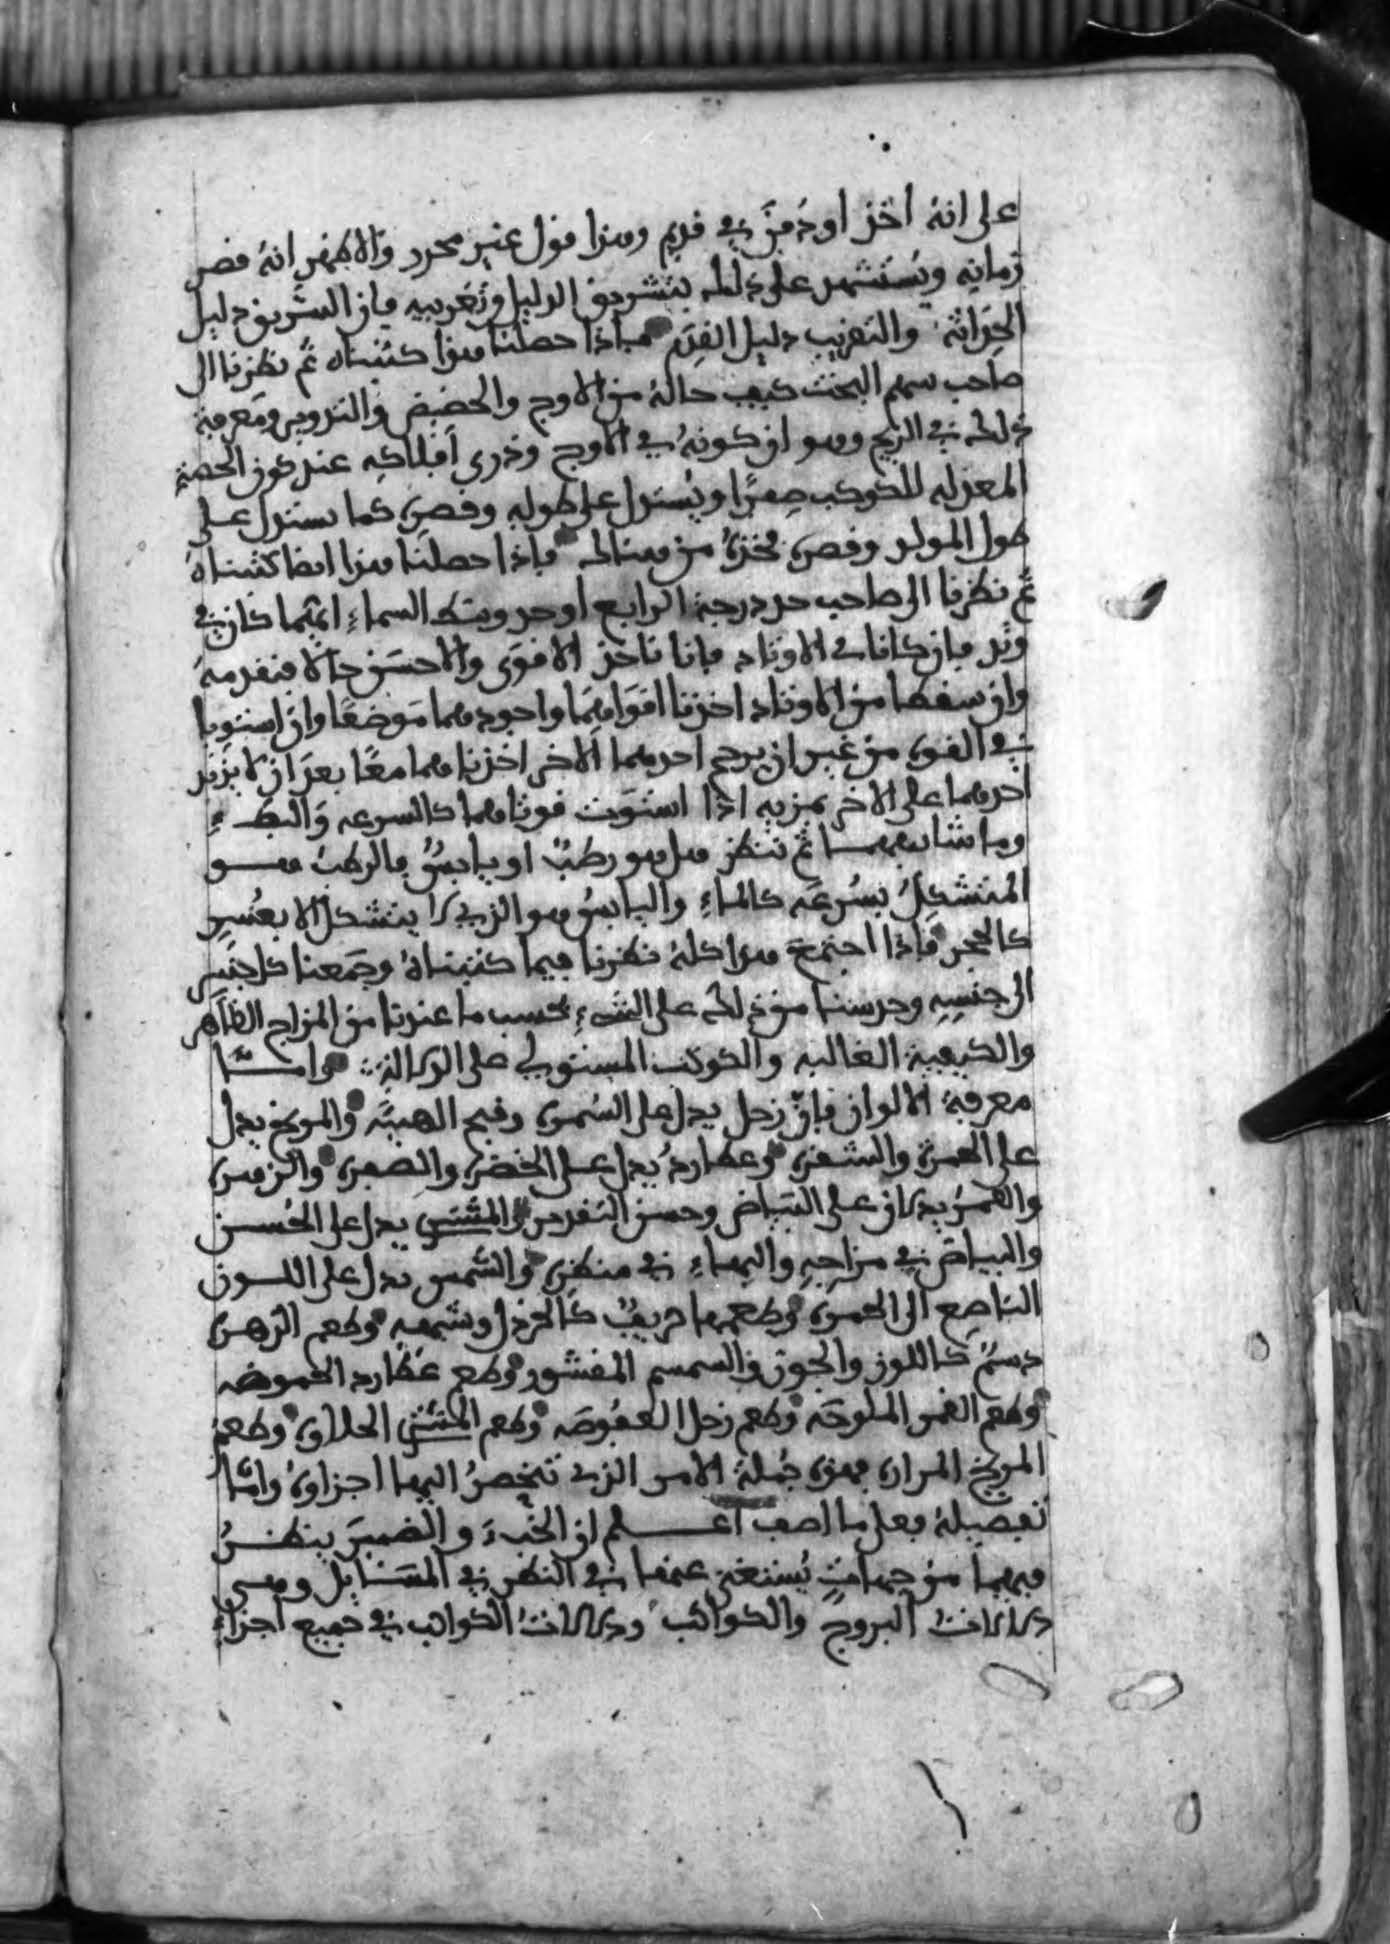 على انه أخذ أو دفن في قديم وهذا قول غير محدد والاظهر انه قصر
زمانه ويستشهد على ذلك بتشريق الدليل وتغريبه فإن التشريق دليل
الحداثة والتغريب دليل القدم فإذا حصلنا هذا كتبناه ثم نظرنا الى
صاحب سهم البخت كيف حاله من الاوج والحضيض والتدوير ومعرفة
ذلك في الزيج وهو ان كونه في الاوج وذرى أفلاكه عند كون الحصة
المعدله للكوكب صفرا ويستدل على طوله وقصره كما يستدل على
طول المولد وقصره فخذه من هنالك فإذا حصلنا هذا ايضا كتبناه
ثم نظرنا الى صاحب حد درجة الرابع أو حد وسط السماء ايهما كان في
وتد فإن كانا في الاوتاد فإنا ناخذ الاقوى والاحسن حالا فنقدمه
وان سقطا من الاوتاد اخذنا اقواهما واجودهما موضعا وان استويا
في القوى من غير ان يرجح احدهما الاخر اخذناهما معا بعد ان لا يزيد
احدهما على الاخر بمزيه اذا استوت قوتاهما كالسرعه والبطء
وما شابههما ثم ننظر هل هو رطب او يابس فالرطب هو
المتشكل بسرعه كالماء واليابس هو الذي لا يتشكل الا بعسر
كالحجر فإذا اجتمع هذا كله نظرنا فيما كتبناه وجمعنا كل جنس
الى جنسه وحدسنا من ذلك على الشيء بحسب ما عندنا من المزاج الظاهر
والكيفية الغالبه والكوكب المستولي على الدلالة وأما
معرفة الالوان فإن زحل يدل على السمرة وقبح الهيئة والمريخ يدل
على الحمرة والشقرة وعطارد يدل على الخضرة والصفرة والزهرة
والقمر يدلان على البياض وحسن التقدير والمشتري يدل على الحسن
والبياض في مزاجه والبهاء في منظره والشمس يدل على اللون
الناصع الى الحمرة وطعمها حريف كالخردل وشبهه وطعم الزهرة
دسم كاللوز والجوز والسمسم المقشور وطعم عطارد الحموضه
وطعم القمر الملوحه وطعم زحل العفوصه وطعم المشتري الحلاوة وطعم
المريخ المرارة فهذه جملة الامر الذي تنحصر اليها اجزاوه واما
تفصيله فعلى ما اصف اعلم ان الخبء والضمير ينظر
فيهما من جهات يستغنى عنها في النظر في المسايل وهي
دلالات البروج والكواكب ودلالات الكواكب في جميع اجزاء